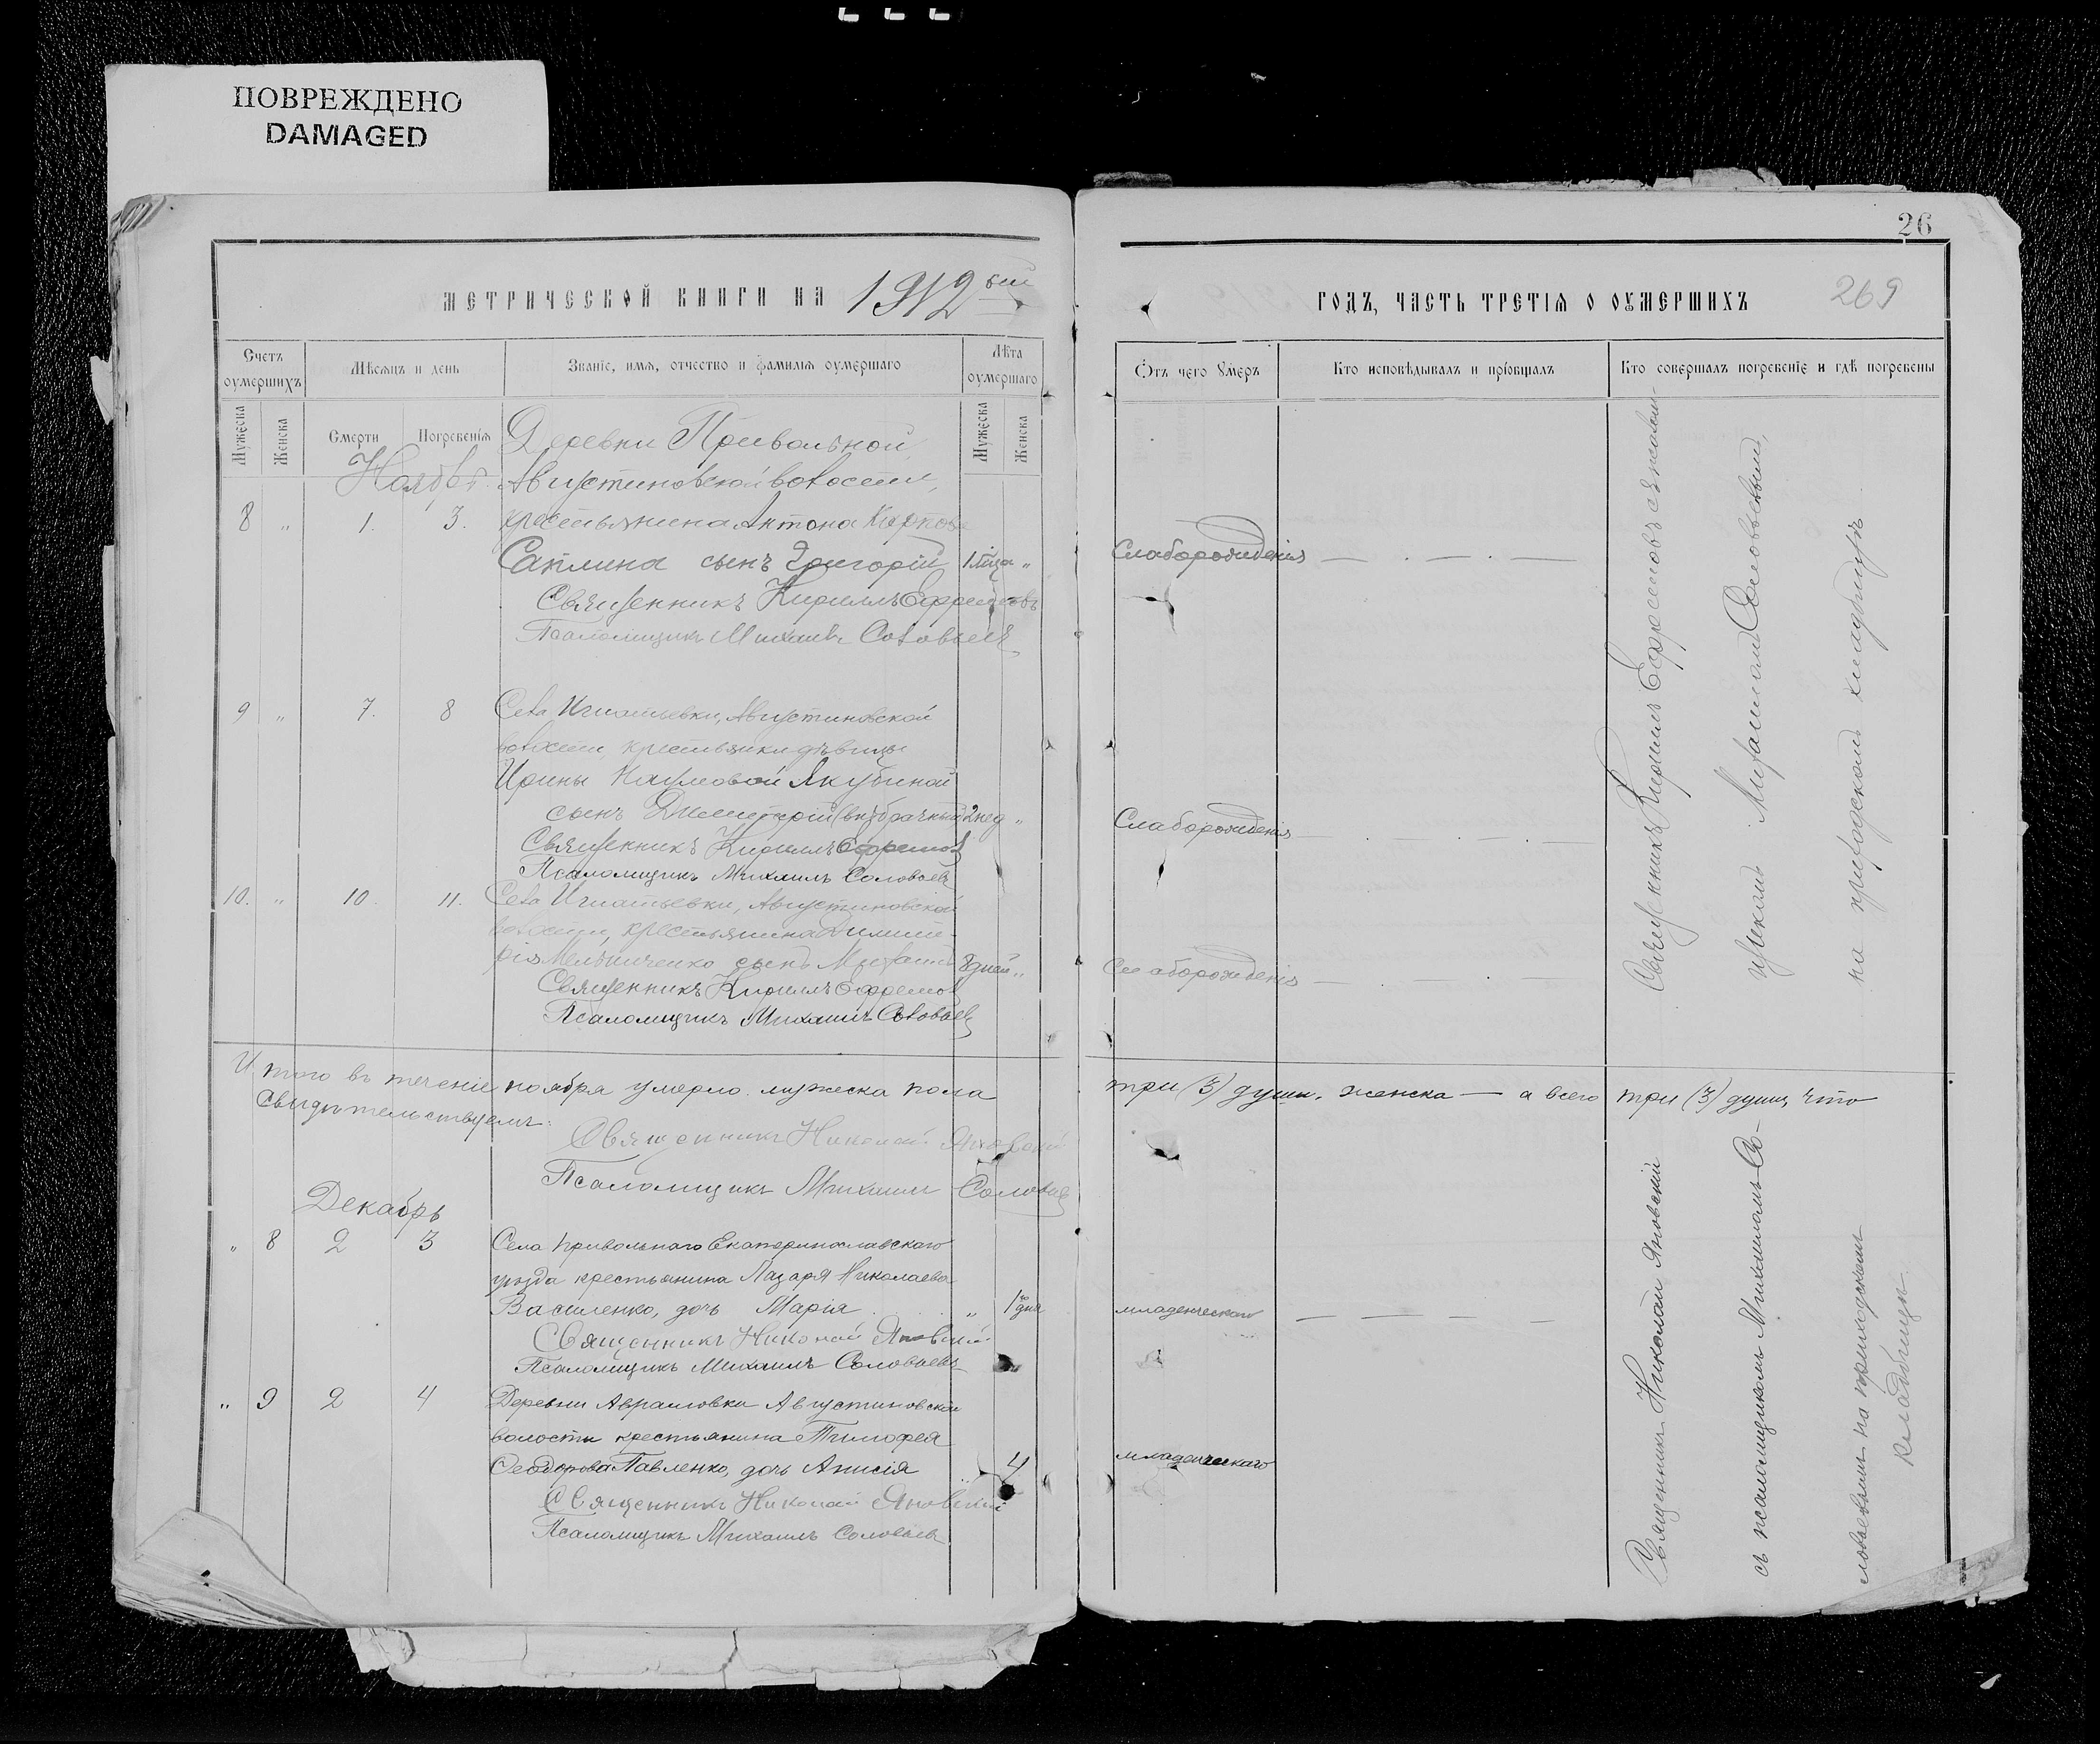 ПОВРЕЖДЕНО
DAMAGED
26
269
МЕТРИЧЕСКОЙ КНИГИ НА 1912 ый
ГОДЪ, ЧАСТЬ ТРЕТІЯ О ОУМЕРШИХЪ
Счетъ оумершихъ
Мѣсяцъ и день
Званіе, имя, отчество и фамилія оумершаго
Лѣта оумершаго
Отъ чего умеръ
Кто исповѣдывалъ и пріобщалъ
Кто совершалъ погребеніе и гдѣ погребены
Мужеска
Женска
Смерти
Погребенія
Мужеска
Женска
Ноябрь
Деревни Привольной,
Августиновской волости,
8 „ 1. 3. крестьянина Антона
сынъ Григорій „ Слаборожденія
Священникъ Кириллъ Ефремовъ
Псаломщикъ Михаилъ Соловьевъ
9 „ 7. 8 Села Игнатьевки, Августиновской
волости, крестьянки дѣвицы
Ирины Наумовой Якубиной
сынъ Димитрій (внѣбрачный) 2 нед „ Слаборожденія
Священникъ Кириллъ Ефремов
Псаломщикъ Михаилъ Соловьевъ
10. „ 10. 11. Села Игнатьевки, Августиновской
волости, крестьянина Димит-
рія Мельниченко сынъ Михаилъ 8 дней „ Слаборожденія
Священникъ Кириллъ Ефремов
Псаломщикъ Михаилъ Соловьевъ
Священникъ Кириллъ Ефремовъ съ псалом-
щикомъ Михаиломъ Соловьевымъ,
на приходскомъ кладбищѣ
Итого въ теченіе ноября умерло мужеска пола три (3) души, женска — а всего три (3) души, что
свидѣтельствуемъ:
Священникъ Николай Яновскій
Псаломщикъ Михаилъ Соловьев
Декабрь
„ 8 2 3 Села Привольнаго Екатеринославскаго
уѣзда крестьянина Лазаря Николаева
Василенко, дочь Марія „ 1 дня младенческаго
Священникъ Николай Яновскій
Псаломщикъ Михаилъ Соловьевъ
„ 9 2 4 Деревни Аврамовки Августиновской
волости крестьянина Тимофея
Феодорова Павленко, дочь Анисія „ 4 младенческаго
Священникъ Николай Яновскій
Псаломщикъ Михаилъ Соловьев
Священникъ Николай Яновскій
съ псаломщикомъ Михаиломъ Со-
ловьевымъ на приходскомъ
кладбищѣ